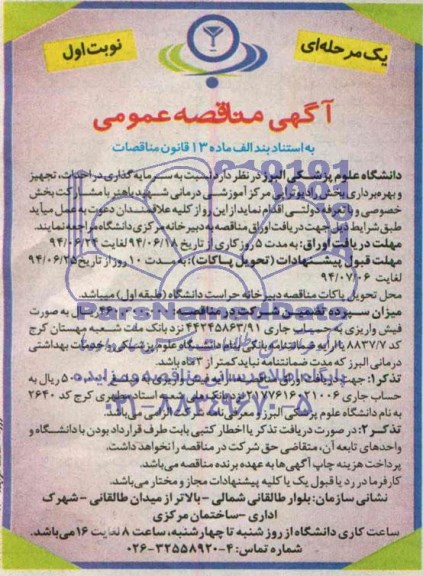 یک مرحله‌ای
نوبت اول
آگهی مناقصه عمومی
به استناد بند الف ماده ۱۳ قانون مناقصات
دانشگاه علوم پزشکی البرز در نظر دارد نسبت به سرمایه گذاری در احداث، تجهیز
و بهره برداری بخش رادیوتراپی مرکز آموزشی درمانی شهید باهنر با مشارکت بخش
خصوصی و با تعرفه دولتی اقدام نماید از این رو از کلیه علاقمندان دعوت به عمل میآید
طبق شرایط ذیل جهت دریافت اوراق مناقصه به دبیرخانه مرکزی دانشگاه مراجعه نمایند.
مهلت دریافت اوراق: به مدت ۵ روز کاری از تاریخ ۹۴/۰۶/۱۸ لغایت ۹۴/۰۶/۲۴
مهلت قبول پیشنهادات (تحویل پاکات): به مدت ۱۰ روز از تاریخ ۹۴/۰۶/۲۵
لغایت ۹۴/۰۷/۰۶
محل تحویل پاکات مناقصه دبیرخانه حراست دانشگاه (طبقه اول) میباشد.
میزان سپرده تضمین شرکت در مناقصه: ریال به صورت
فیش واریزی به حساب جاری ۴۴۲۴۵۸۶۳/۹۱ نزد بانک ملت شعبه مهستان کرج
کد ۸۸۳۷/۷ یا ارایه ضمانتنامه بانکی بنام دانشگاه علوم پزشکی و خدمات بهداشتی
درمانی البرز که مدت ضمانتنامه نباید کمتر از ۳ ماه باشد.
تذکر۱: جهت دریافت اوراق مناقصه ارایه فیش واریزی به مبلغ ریال به
حساب جاری ۲۱۷۷۶۱۶۰۲۱۰۰۶ نزد بانک ملی شعبه استاد مطهری کرج کد ۲۶۴۰
به نام دانشگاه علوم پزشکی البرز و معرفی نامه باشد.
تذکر۲: در صورت دریافت تذکر یا اخطار کتبی بابت طرف قرارداد بودن با دانشگاه و
واحدهای تابعه آن، متقاضی حق شرکت در مناقصه را نخواهد داشت.
پرداخت هزینه چاپ آگهی ها به عهده برنده مناقصه می‌باشد.
کارفرما در رد یا قبول یک یا کلیه پیشنهادات مجاز و مختار می‌باشد.
نشانی سازمان: بلوار طالقانی شمالی - بالاتر از میدان طالقانی - شهرک
اداری - ساختمان مرکزی
ساعت کاری دانشگاه از روز شنبه تا چهارشنبه، ساعت ۸ لغایت ۱۶ می‌باشد.
شماره تماس: ۴-۳۲۵۵۸۹۲۰-۰۲۶
ParsNamadData
پایگاه اطلاع رسانی مناقصه و مزایده
۰۲۱-۸۸۳۴۹۶۷۰-۵